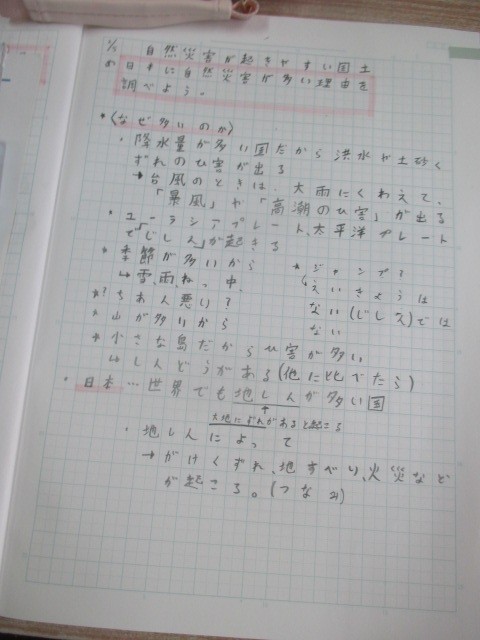 自然災害が起きやすい国土
め 日本に自然災害が多い理由を
調べよう。
*〈なぜ多いのか〉
・降水量が多い国だから洪水や土砂く
ずれのひ害が出る
→台風のときは、大雨にくわえて、
「暴風」や「高潮のひ害」が出る
・ユーラシアプレート、太平洋プレート
で「じしん」が起きる
*季節が多いから
↳雪、雨、ねっ中、
*ジャンプ?
えいきょうは
ない(じしん)では
ない
*?ちあん悪い?
*山が多いから
*小さな島だからひ害が多い
↳しんどうがある(他に比べたら)
・日本…世界でも地しんが多い国
↑
大地にずれがあると起こる
・地しんによって
→がけくずれ、地すべり、火災など
が起こる。(つなみ)